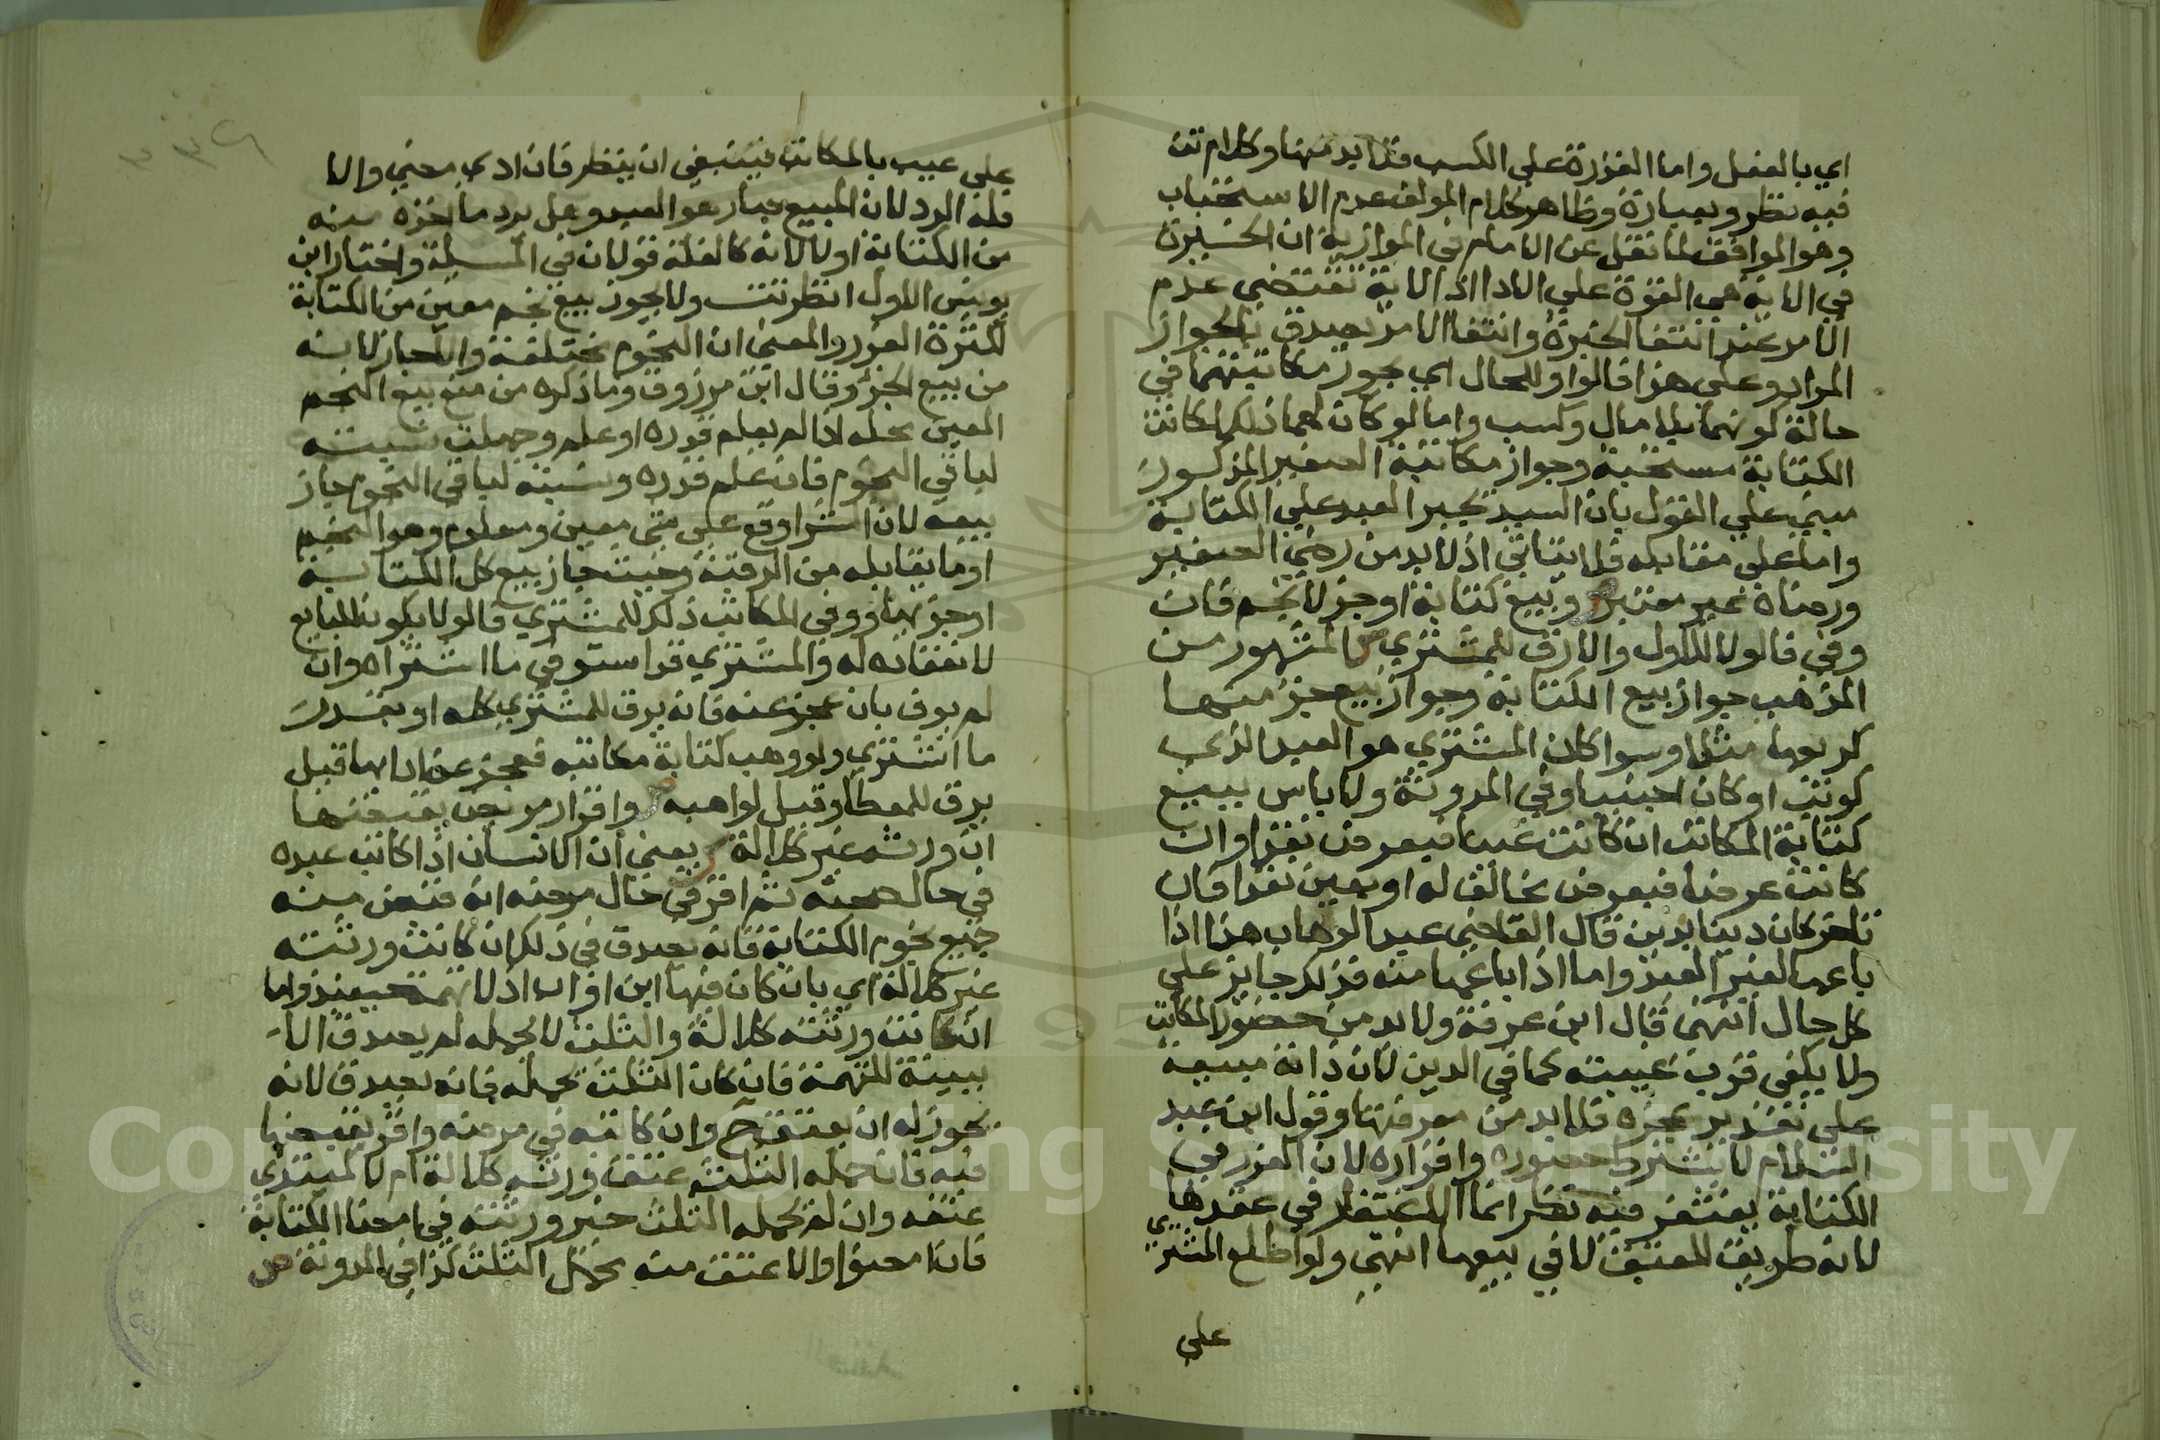 اي بالفعل واما القدرة علي الكسب فلا بد منها وكلام تت
فيه نظر وبعبارة وظاهر كلام المولف عدم الاستحباب
وهو الموافق لما نقل عن الامام في الموازية ان الخيرة
في الاية هي القوة علي الادا اذ الاية تقتضي عدم
الامر عند انتفا الخيرة وانتفا الامر يصدق بالجواز
المراد وعلي هذا قالوا وللحال اي يجوز مكاتبتهما في
حالة كونهما بلا مال وكسب واما لو كان لهما ذلك لكانت
الكتابة مستحبة وجواز مكاتبة الصغير المذكور
مبني علي القول بان السيد يجبر العبد علي الكتابة
واما علي مقابله فلا يتاتي اذ لا بد من رضي الصغير
ورضاه غير معتبر ص وبيع كتابة او جزء لا نجم فان
وفي فالولا للاول والا رق للمشتري ش المشهور من
المذهب جواز بيع الكتابة وجواز بيع جزء منها
كربعها مثلا وسوا كان المشتري هو العبد الذي
كوتب او كان اجنبيا وفي المدونة ولا باس ببيع
كتابة المكاتب ان كانت عينا فبعرض نقدا وان
كانت عرضا فبعرض مخالف له او بعين نقدا فان
تاخر كان دينا بدين قال القاضي عبد الوهاب هذا اذا
باعها لغير العبد واما اذا باعها منه فذلك جايز علي
كل حال انتهي قال ابن عرفة ولا بد من حضور المكاتب
ولا يكفي قرب غيبته كما في الدين لان ذاته مبيعة
علي تقدير عجزه فلا بد من معرفتها وقول ابن عبد
السلام لا يشترط حضوره واقراره لان الغرر في
الكتابة يغتفر فيه نظر انما اغتفر في عقدها
لانه طريق للعتق لا في بيعها انتهي ولو اطلع المشتري
علي
علي عيب بالمكاتب فينبغي ان ينظر فان ادي مضي والا
فله الرد لان المبيع صار هو العبد وهل يرد ما اخذه منه
من الكتابة اولا لانه كالغلة قولان في المسيلة واختار ابن
يونس الاول انظر تت ولا يجوز بيع نجم معين من الكتابة
لكثرة الغرر والمعني ان النجوم مختلفة والا جاز لانه
من بيع الجزء وقال ابن مرزوق وما ذكره من منع بيع النجم
المعين محله اذا لم يعلم قدره او علم وجهلت نسبته
لباقي النجوم فان علم قدره ونسبته لباقي النجوم جاز
بيعه لان الشرا وقع علي شي معين ومعلوم وهو النجم
او ما يقابله من الرقبة وحيث جاز بيع كل الكتابة
او جزيها ووفي المكاتب ذلك للمشتري فالولا يكون للبايع
لانعقاده له والمشتري قد استوفي ما اشتراه وان
لم يوف بان عجز عنه فانه يرق للمشتري كله او بقدر
ما اشتري ولو وهب كتابة مكاتبه فعجز عن ادايها قبل
يرق للمعطا وقيل لواهبه ص واقرار مريض بقبضها
ان ورثه غير كلالة ش يعني ان الانسان اذا كاتب عبده
في حال صحته ثم اقر في حال مرضه انه قبض منه
جميع نجوم الكتابة فانه يصدق في ذلك ان كانت ورثته
غير كلالة اي بان كان فيها ابن او اب اذ لا تهمة حينيذ واما
ان كانت ورثته كلالة والثلث لا يحمله لم يصدق الا
ببينة للتهمة فان كان الثلث يحمله فانه يصدق لانه
يجوز له ان يعتقه ح وان كاتبه في مرضه واقر بقبضها
فيه فان حمله الثلث عتق ورثه كلالة ام لا كمبتدي
عتقه وان لم يحمله الثلث خير ورثته في امضا الكتابة
فان امضوا والا عتق منه محمل الثلث كذا في المدونة ص